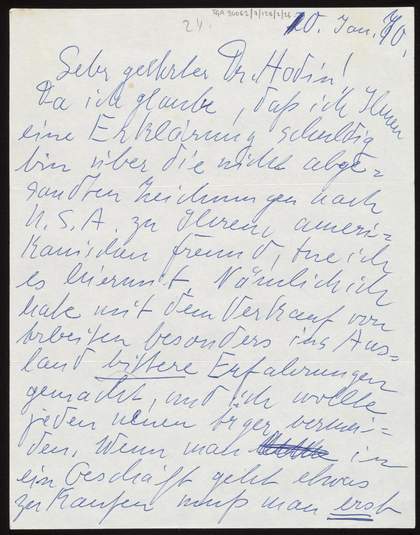 24.
TGA 20062/4/126/2/26
20. Jan. 70.
Sehr geehrter Dr. Hodin!
Da ich glaube, daß ich Ihnen
eine Erklärung schuldig
bin über die nicht abge=
sandten Zeichnungen nach
U.S.A. zu Ihrem ameri=
kanischen Freund, tue ich
es hiermit. Nämlich ich
habe mit dem Verkauf von
Arbeiten besonders ins Aus=
land bittere Erfahrungen
gemacht, und ich wollte
jeden neuen Ärger vermei=
den. Wenn man in
ein Geschäft geht etwas
zu kaufen muß man erst